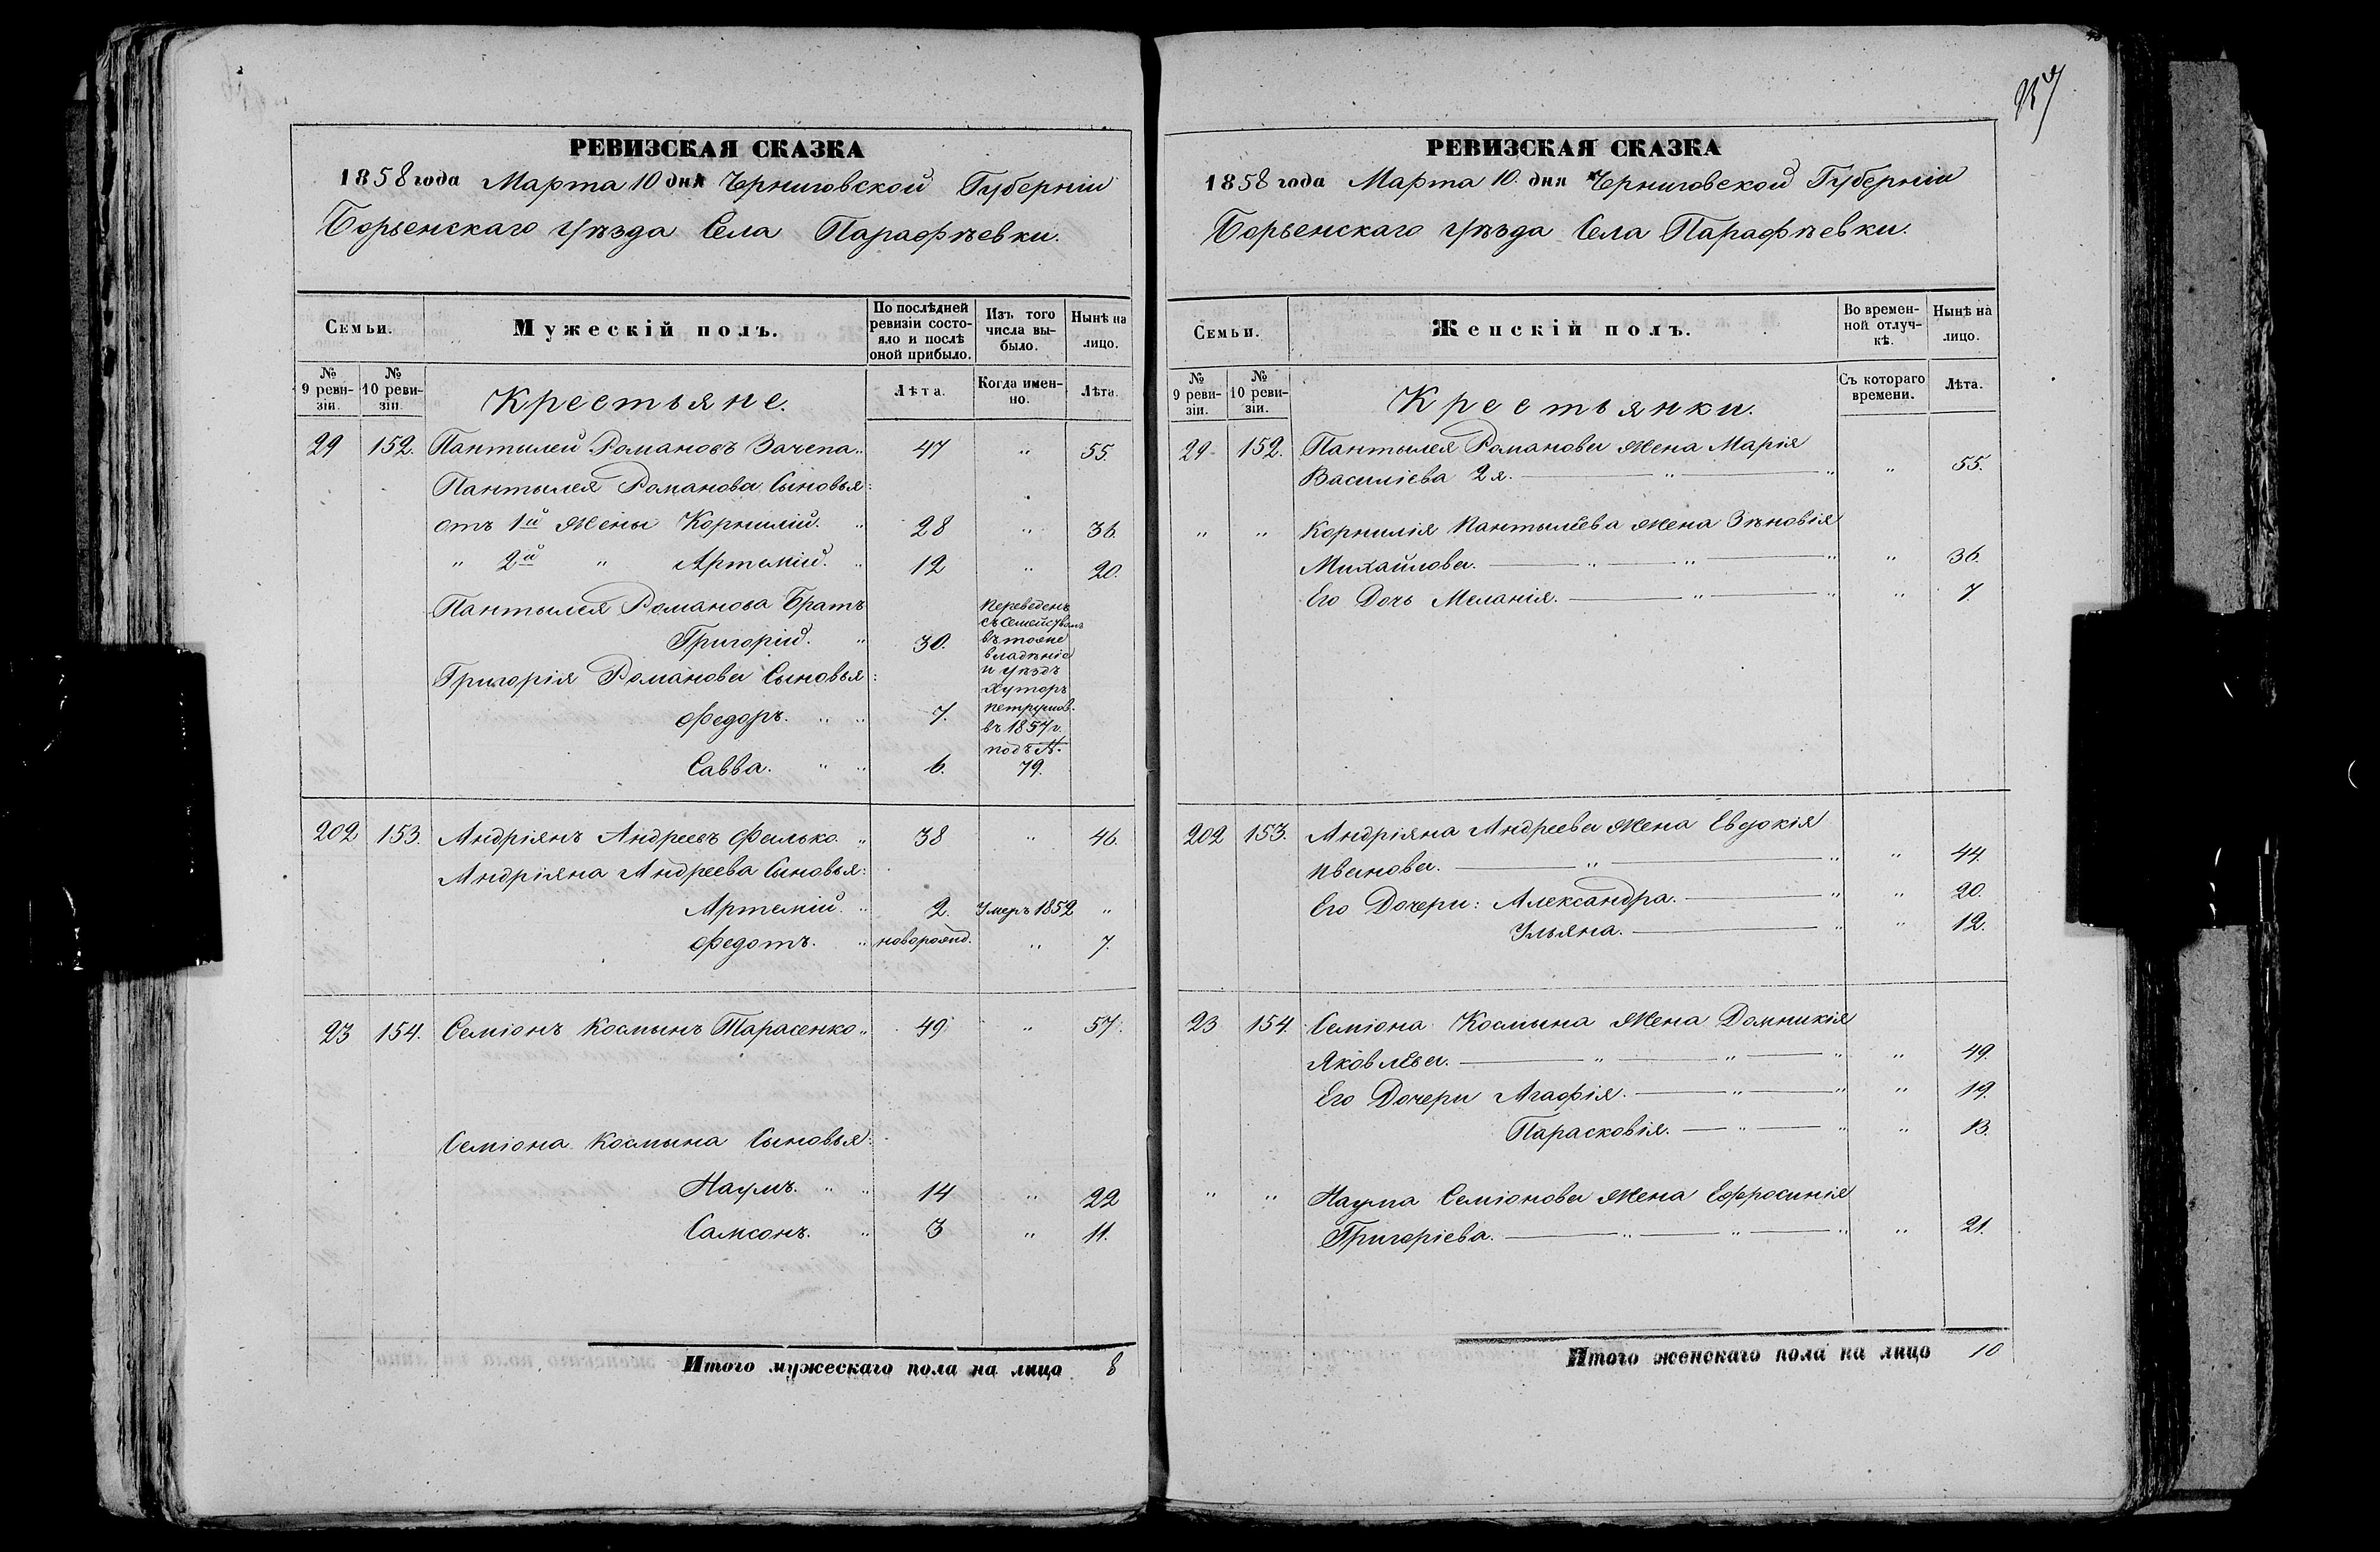 РЕВИЗСКАЯ СКАЗКА
1858 года Марта 10 дня Черниговской Губерніи
Борзенскаго уѣзда Села Парафѣевки.
Семьи.
Мужескій полъ.
По послѣдней ревизіи состояло и послѣ оной прибыло.
Изъ того числа выбыло.
Нынѣ на лицо.
№ 9 ревизіи.
№ 10 ревизіи.
Крестьяне.
Лѣта.
Когда именно.
Лѣта.
29 152. Пантылей Романовъ Зачепа „ 47 „ 55.
Пантылея Романова Сыновья:
отъ 1й жены Корнилій. „ 28 „ 36.
„ 2й „ Артемій. „ 12 „ 20.
Пантылея Романова Братъ
Григорій. „ 30.
Григорія Романова Сыновья:
Федоръ. „ „ 7.
Савва. „ „ 6.
переведенъ
съ семейством
въ тоже
владѣніе
и уѣздъ
хуторъ
въ 1857 г.
подъ №.
79.
202 153. Андріянъ Андреевъ Филько. „ 38 „ 46.
Андріяна Андреева Сыновья:
Артемій. „ 2. Умеръ 1852 „
Федотъ. „ новорожд. „ 7.
23 154. Семіонъ Космынъ Тарасенко „ 49 „ 57.
Семіона Космына Сыновья:
Наумъ. „ „ 14 „ 22
Самсонъ. „ 3 „ 11.
Итого мужескаго пола на лицо 8
РЕВИЗСКАЯ СКАЗКА
1858 года Марта 10. дня Черниговской Губерніи
Борзенскаго уѣзда Села Парафѣевки.
Семьи.
Женскій полъ.
Во временной отлучкѣ.
Нынѣ на лицо.
№ 9 ревизіи.
№ 10 ревизіи.
Крестьянки.
Съ котораго времени.
Лѣта.
29 152. Пантылея Романова жена Марія
Василіева 2я. „ „ „ 55.
„ „ Корнилія Пантылѣева жена Зѣновія
Михайлова. „ „ „ „ 36.
Его Дочь Меланія. „ „ „ 7.
202 153. Андріяна Андреева жена Евдокія
Иванова. „ „ „ 44.
Его Дочери: Александра. „ „ 20.
Ульяна. „ „ 12.
23 154. Семіона Космына жена Домникія
Яковлѣва. „ „ „ „ 49.
Его Дочери Агафія. „ „ „ 19.
Парасковія. „ „ „ 13.
„ „ Наума Семіонова жена Ефросинія
Григоріева. „ „ „ „ 21.
Итого женскаго пола на лицо 10